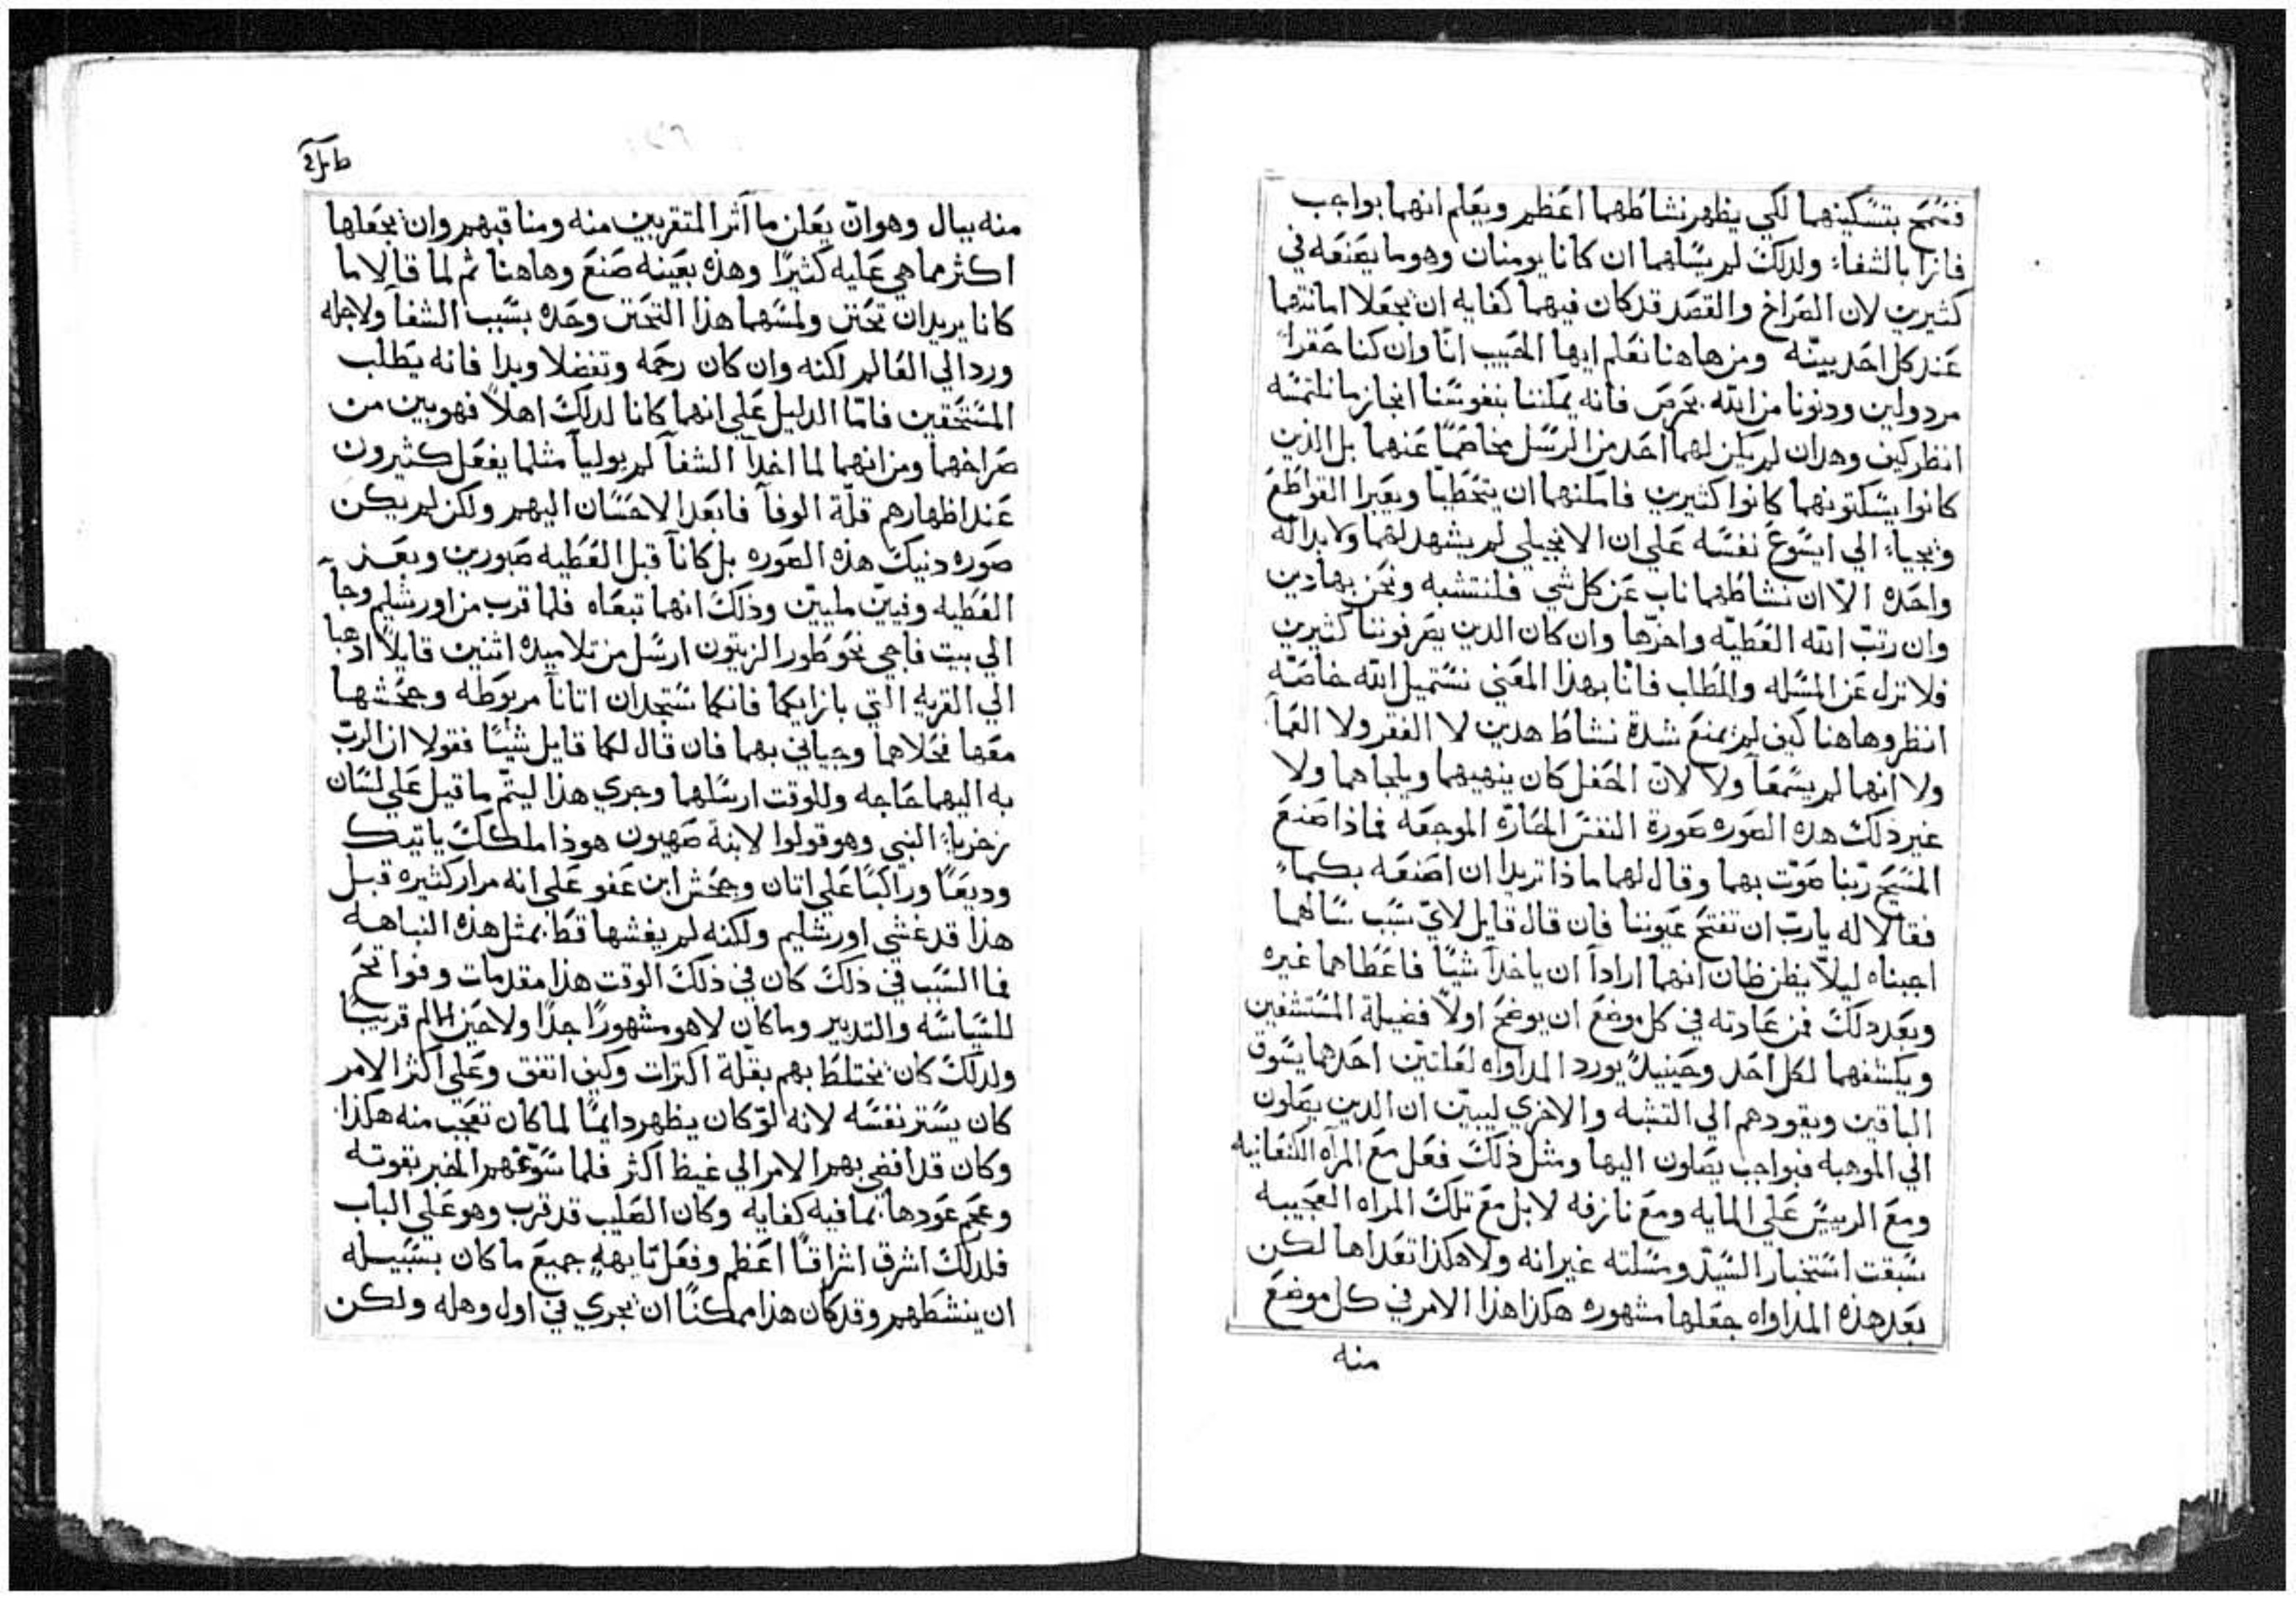 فسمح بتسكينهما لكي يظهر نشاطهما اعظم ويعلم انهما بواجب
فازا بالشفاء ولدلك لم يسلهما ان كانا يومنان وهو ما يصنعه في
كثيرين لان الصراخ والقصد قد كان فيهما كفايه ان يجعلا امانتهما
عند كل احد بينه ومن هاهنا نعلم ايها الحبيب انا وان كنا حقرا
مردولين ودنونا من الله بحرص فانه يمكننا بنفوسنا انجاز ما نلتمسه
انظر كيف وهدان لم يكن لهما احد من الرسل مخاصما عنهما بل الذين
كانوا يسكتونهما كانوا كثيرين فامكنهما ان يتخطيا ويعبرا القواطع
ويجيا الي ايسوع نفسه علي ان الانجيلي لم يشهد لهما ولا بداله
واحده الا ان نشاطهما ناب عن كل شي فلنتشبه ونحن بهادين
وان رتب الله العطيه واخرها وان كان الدين يصرفوننا كثيرين
فلا نزل عن المسله والطلب فانا بهذا المعني نستميل الله خاصه
انظر وهاهنا كيف لم يمنع شدة نشاط هدين لا الفقر ولا العما
ولا انهما لم يسمعا ولا لان الحفل كان ينهيهما ويلجاهما ولا
غير ذلك هده الصوره صورة النفس الحاره الموجعه فماذا صنع
المسيح ربنا صوت بهما وقال لهما ماذا تريدا ان اصنعه بكما
فقالا له يارب ان تفتح عيوننا فان قال قايل لاي سبب سالهما
اجبناه ليلا يظن ظان انهما ارادا ان ياخدا شيا فاعطاهما غيره
وبعد دلك فمن عادته في كل موضع ان يوضح اولا فضيلة المستشفين
ويكشفهما لكل احد وحينيد يورد المداواه لعلتين احدهما يسوق
الباقين ويقودهم الي التشبه والاخري ليبين ان الدين يصلون
الي الموهبه فبواجب يصلون اليها ومثل ذلك فعل مع المراه الكنعانيه
ومع الرييس علي المايه ومع نازفه لا بل مع تلك المراه العجيبه
سبقت استخبار السيد ومسلته غير انه ولا هكذا تعداها لكن
بعد هذه المداواه جعلها مشهوره هكذا هذا الامر في كل موضع
منه
منه ببال وهو ان يعلن ما آثر المتقربين منه ومناقبهم وان يجعلها
اكثر مما هي عليه كثيرا وهذه بعينه صنع وهاهنا ثم لما قالا ما
كانا يريدان تحنن ولمسهما هذا التحنن وحده بسبب الشفا ولاجله
ورد الي العالم لكنه وان كان رحمه وتفضلا وبدا فانه يطلب
المستحقين فاما الدليل علي انهما كانا لدلك اهلا فهو بين من
صراخهما ومن انهما لما اخدا الشفا لم يوليا مثلما يفعل كثيرون
عند اظهارهم قلة الوفا فابعد الاحسان اليهم ولكن لم يكن
صوره دنيك هذه الصوره بل كانا قبل العطيه صبورين وبعد
العطيه وفيين مليين وذلك انهما تبعاه فلما قرب من اورشليم وجا
الي بيت فاجي نحو طور الزيتون ارسل من تلاميده اثنين قايلا ادهبا
الي القريه التي بازايكما فانكما ستجدان اتانا مربوطه وجحشها
معها فحلاهما وجياني بهما فان قال لكما قايل شيئا فقولا ان الرب
به اليهما حاجه وللوقت ارسلهما وجري هذا ليتم ما قيل علي لسان
زخريا النبي وهو قولوا لابنة صهيون هوذا ملكك ياتيك
وديعا وراكبا علي اتان وجحش ابن عفو علي انه مرار كثيره قبل
هذا قد غشي اورشليم ولكنه لم يغشها قط بمثل هذه النباهه
فما السبب في ذلك كان في ذلك الوقت هذا مقدمات وفواتح
للسياسه والتدبير وما كان لا هو مشهورا جدا ولا حين الالم قريبا
ولدلك كان يختلط بهم بقلة اكترات وكيف اتفق وعلي اكثر الامر
كان يستر نفسه لانه لو كان يظهر دايما لما كان تعجب منه هكذا
وكان قد افضي بهم الامر الي غيظ اكثر فلما سوغهم الخبر بقوته
وعجم عودها بما فيه كفايه وكان الصليب قد قرب وهو علي الباب
فلدلك اشرق اشراقا اعظم وفعل بابهه جميع ما كان بسبيله
ان ينشطهم وقد كان هذا ممكنا ان يجري في اول وهله ولكن